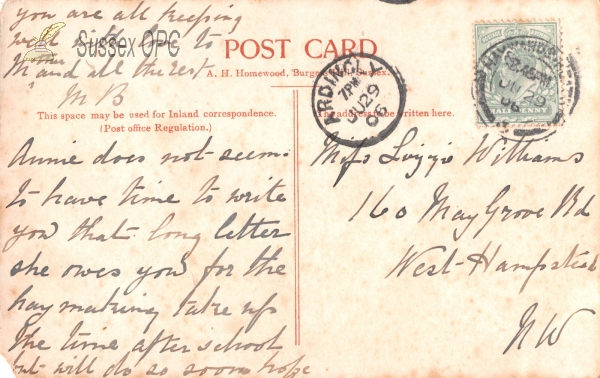 you are all keeping
well
to
M and all the rest
M B
Sussex OPC
POST CARD
A. H. Homewood, Burgess Hill, Sussex.
This space may be used for Inland correspondence.
(Post office Regulation.)
The address to be written here.
ARDINGLY
7PM
JU 29
06
HAYWARDS
HALF PENNY
Annie does not seem
to have time to write
you that long letter
she owes you for the
haymaking take up
the time after school
but will do so soon hope
Miss Lizzie Williams
160 May Grove Rd
West-Hampstead
NW